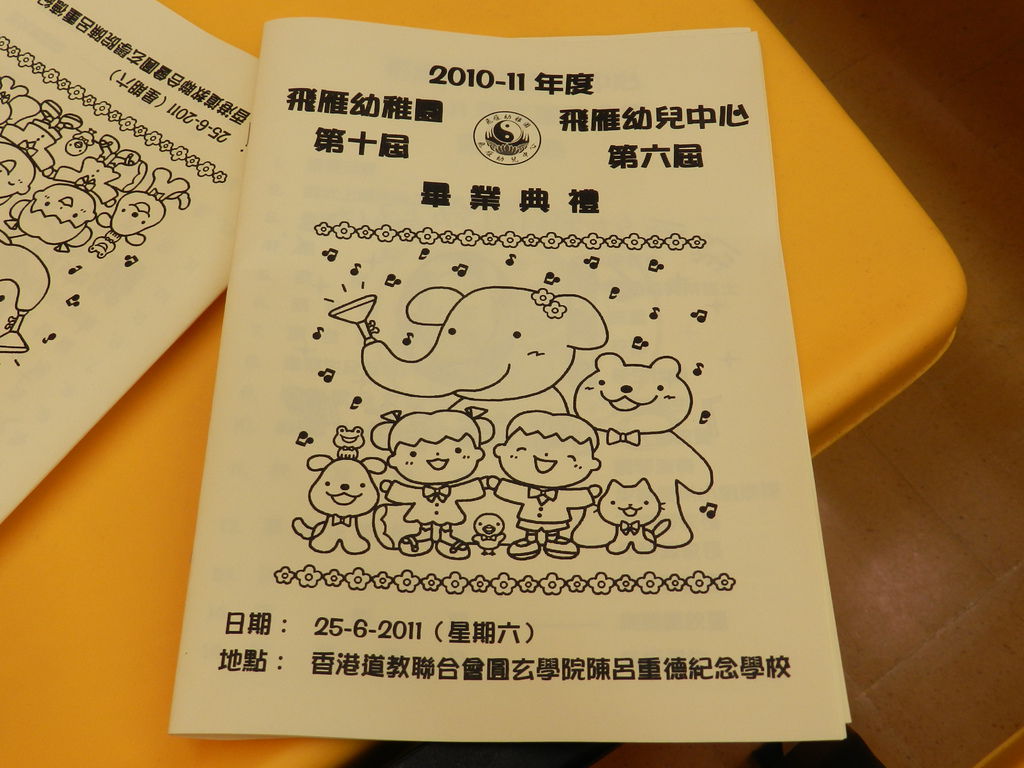 2010-11 年度
飛雁幼稚園 飛雁幼兒中心
第十屆 第六屆
飛雁幼稚園
飛雁幼兒中心
畢業典禮
日期： 25-6-2011（星期六）
地點： 香港道教聯合會圓玄學院陳呂重德紀念學校
25-6-2011（星期六）
香港道教聯合會圓玄學院陳呂重德紀